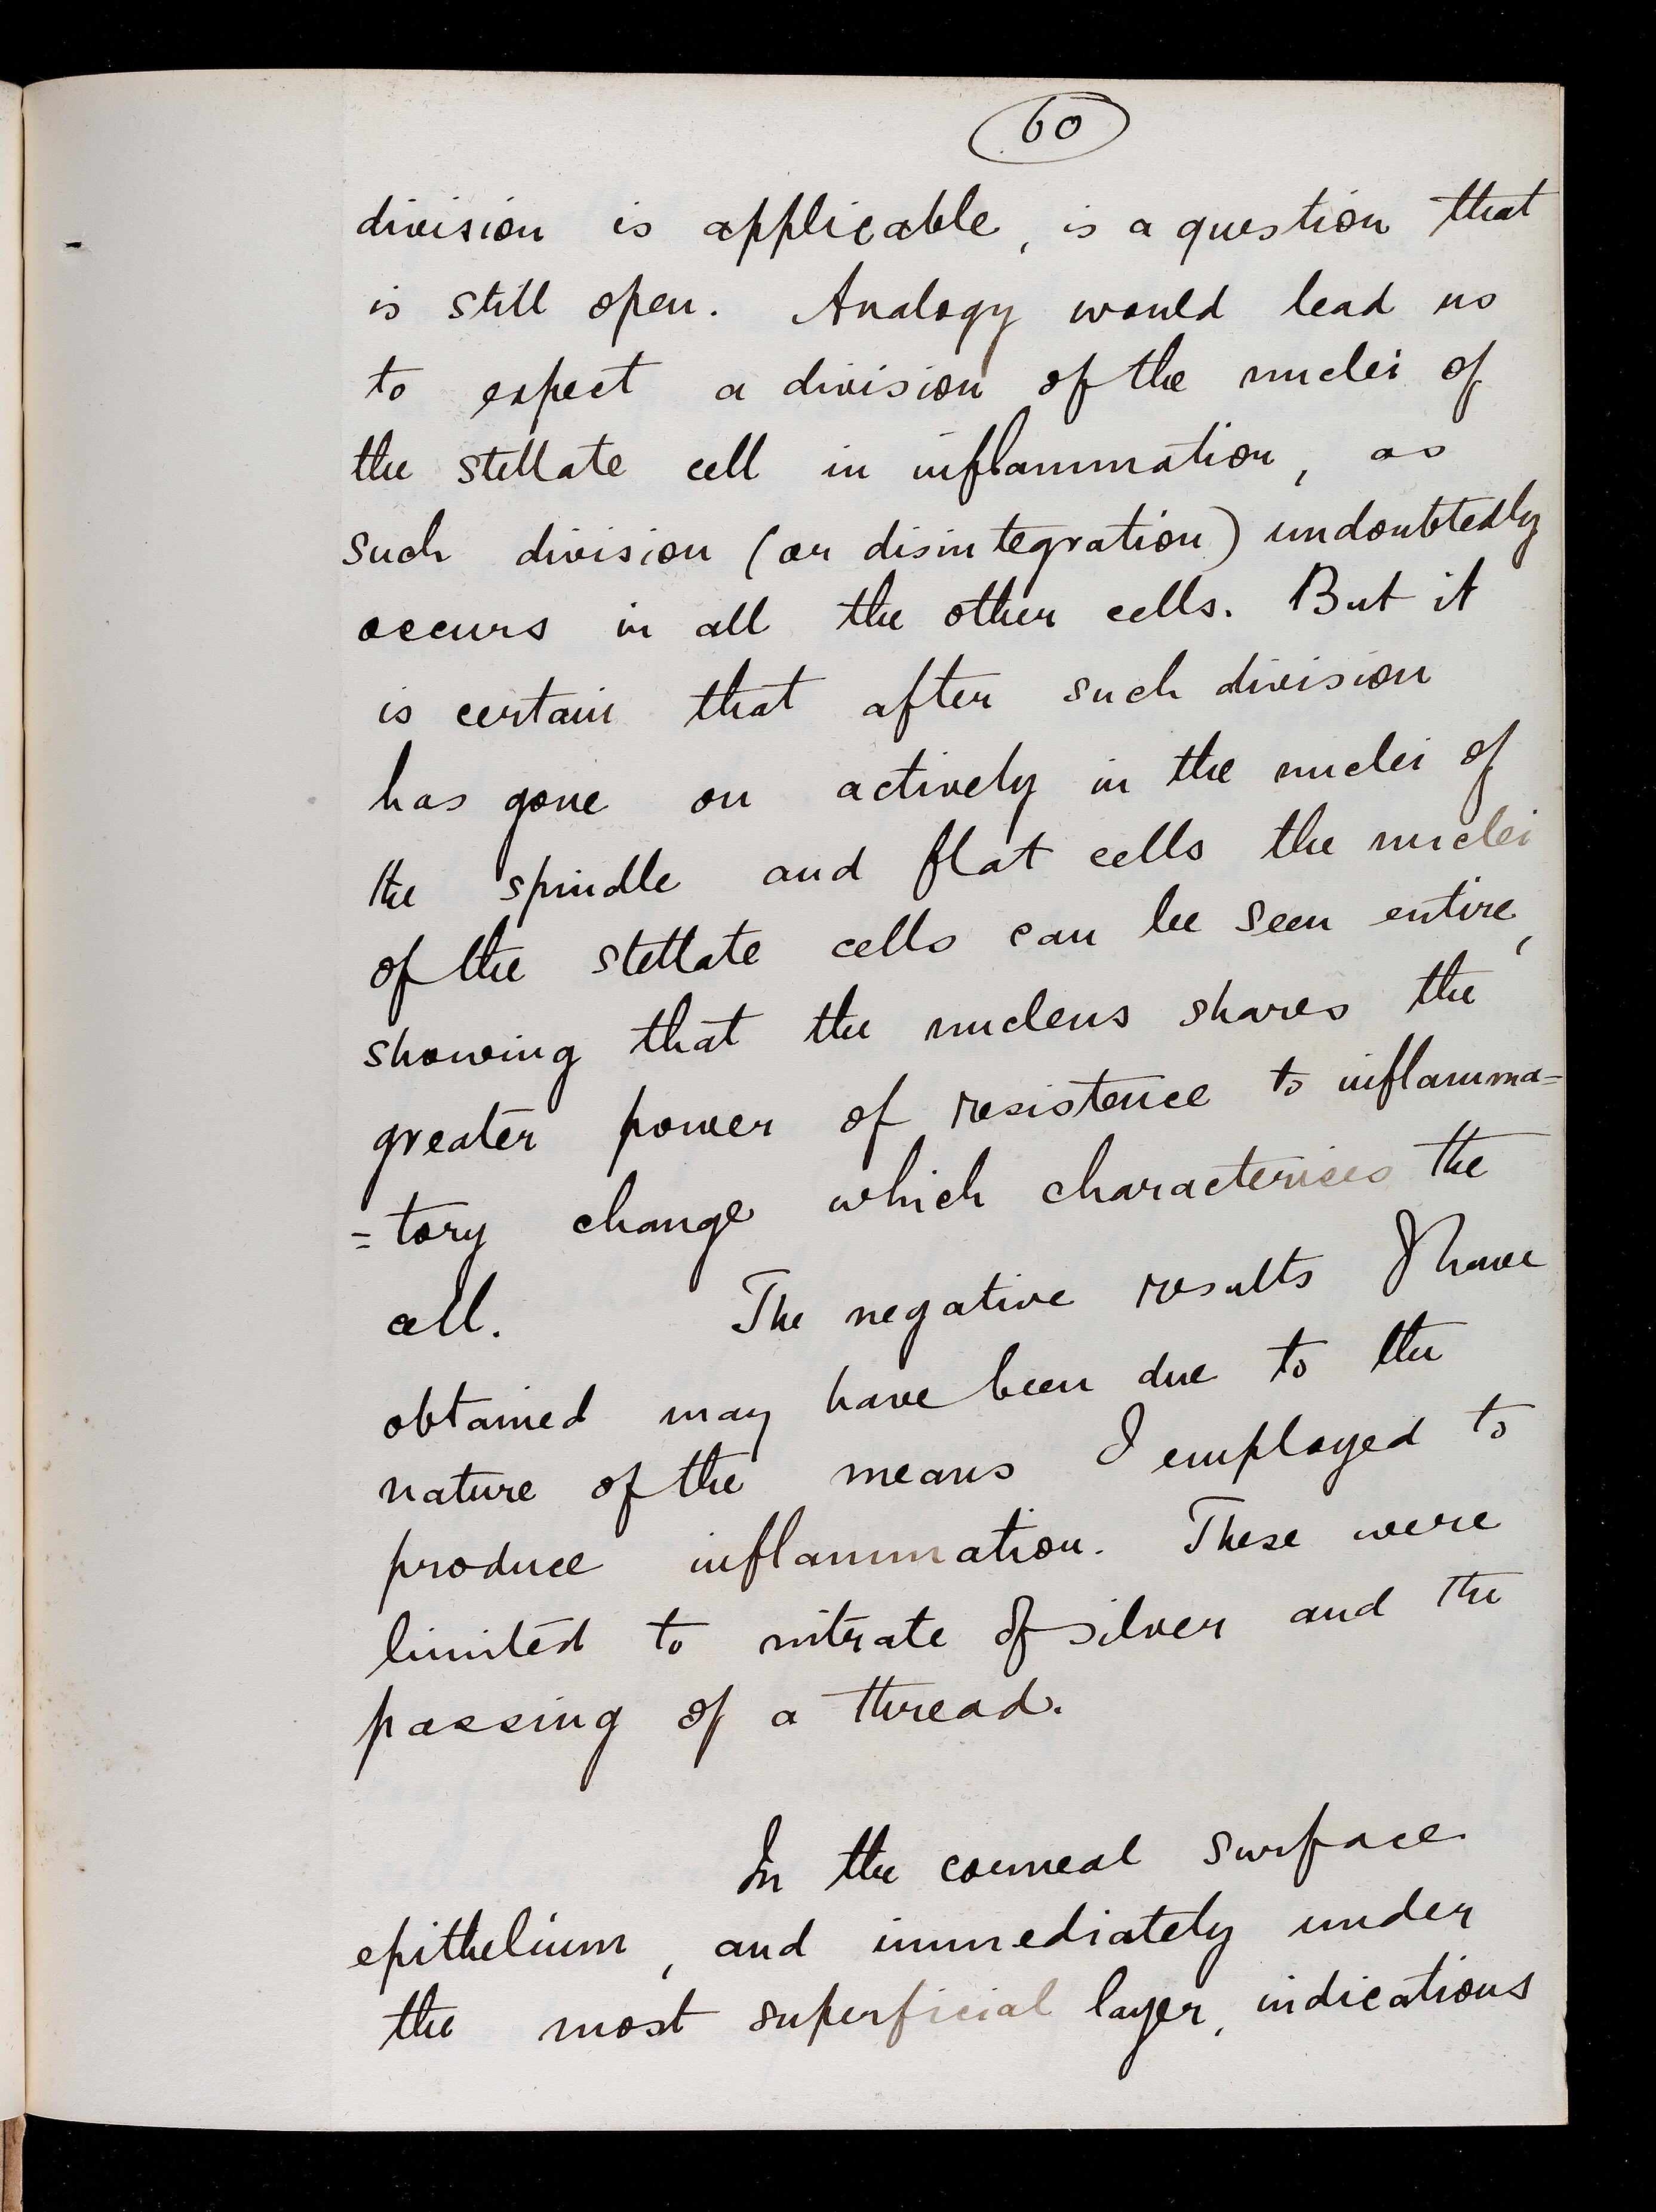 60
division is applicable, is a question that
is still open. Analogy would lead us
to expect a division of the nuclei of
the stellate cell in inflammation, as
such division (or disintegration) undoubtedly
occurs in all the other cells. But it
is certain that after such division
has gone on actively in the nuclei of
the spindle and flat cells the nuclei
of the stellate cells can be seen entire,
showing that the nucleus shares the
greater power of resistence to inflamma=
=tory change which characterises the
cell. The negative results I have
obtained may have been due to the
nature of the means I employed to
produce inflammation. These were
limited to nitrate of silver and the
passing of a thread.
In the corneal surface
epithelium, and immediately under
the most superficial layer, indications